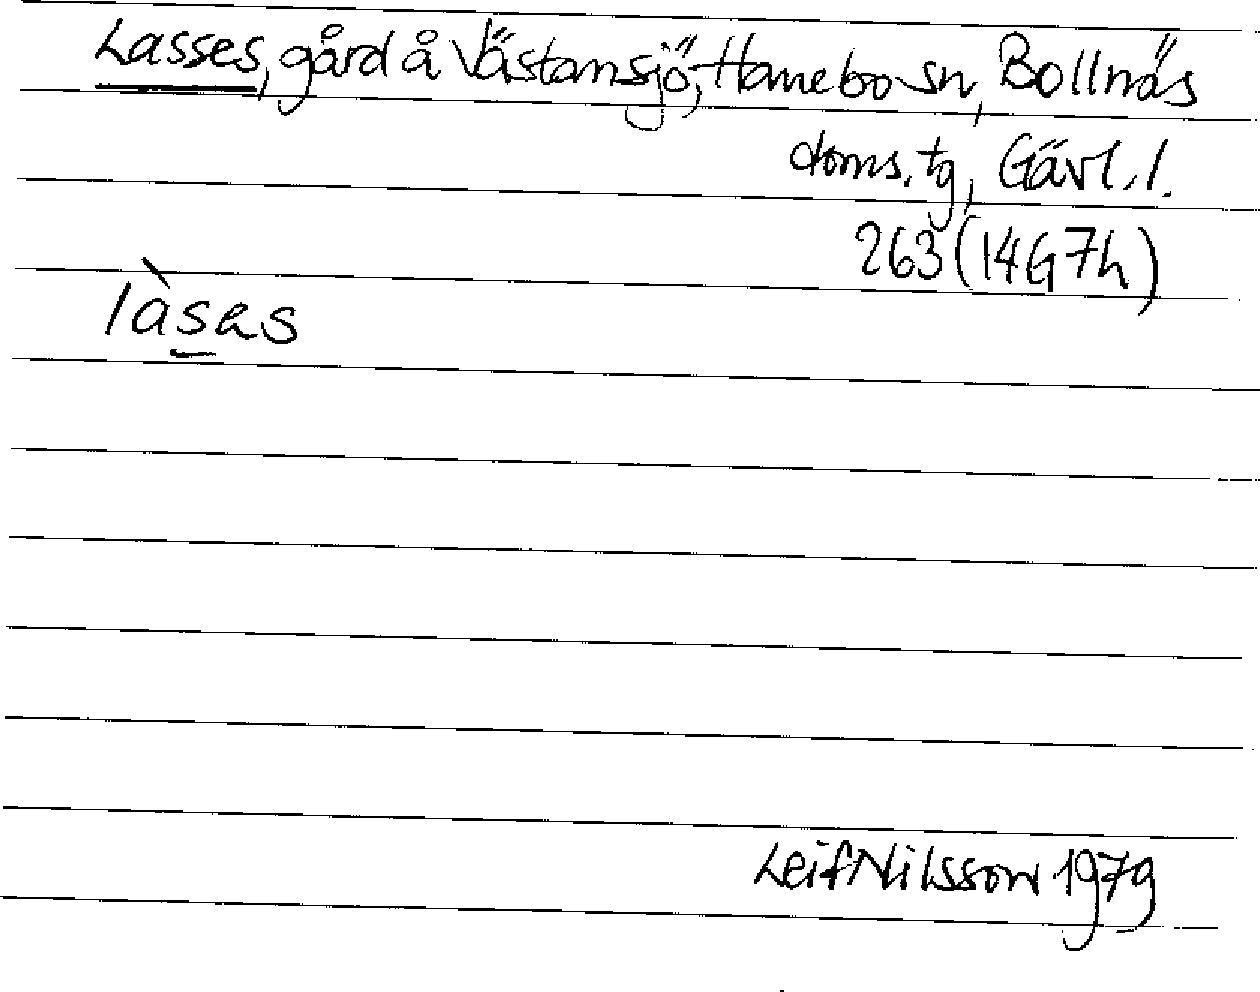 Lasses, gård å Västansjö, Hanebo sn, Bollnäs
doms. tg, Gävl. l.
263 (14G7h)
làses
Leif Nilsson 1979